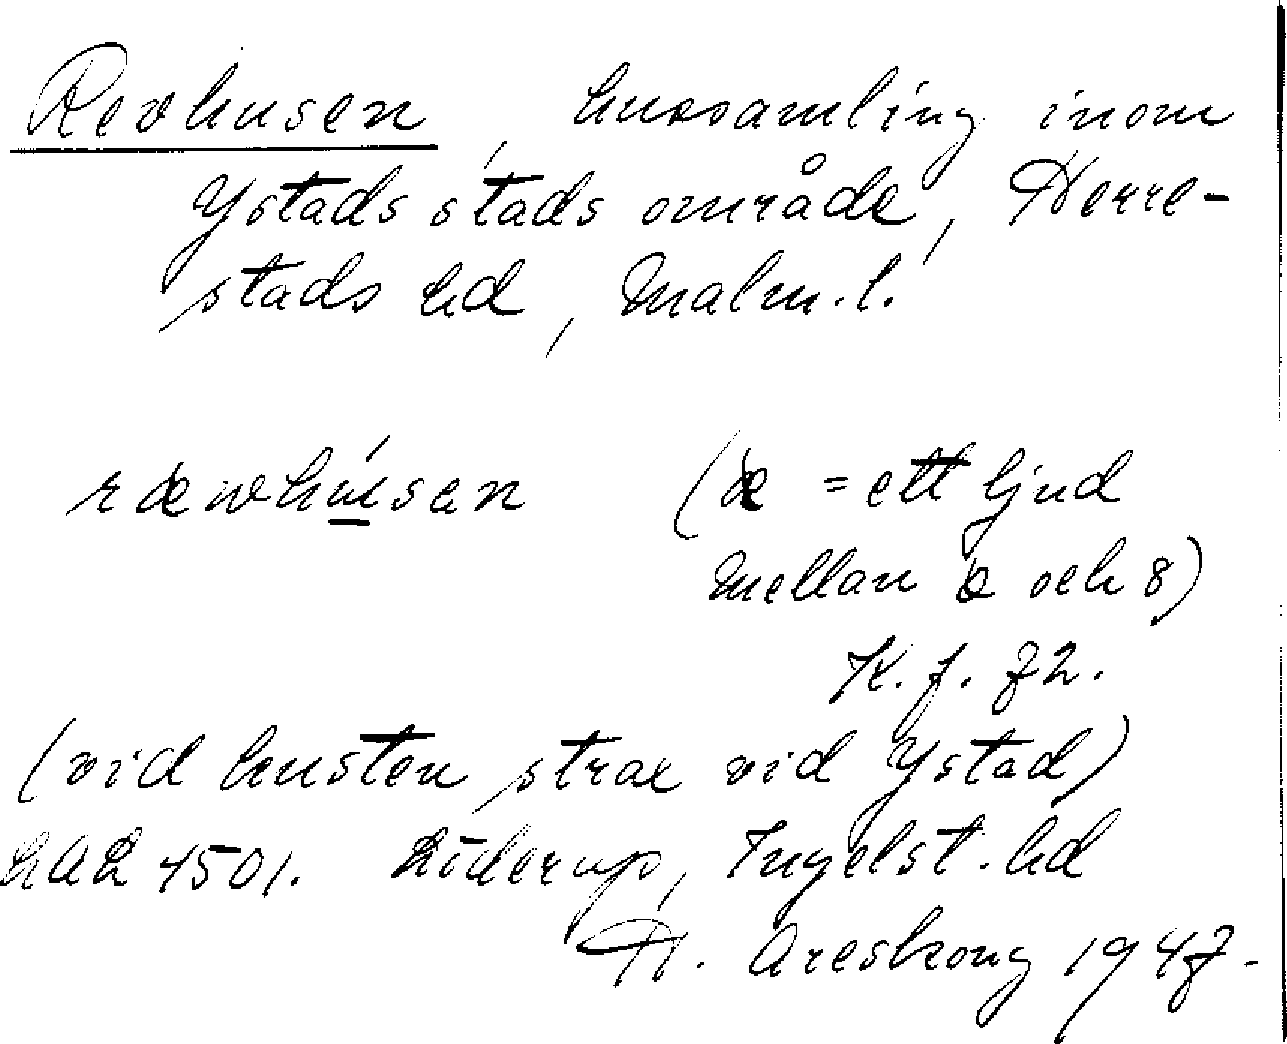 Revhusen, hussamling inom
Ystads stads område, Herre-
stads hd, Malm. l.
ræwhúsen (æ = ett ljud
mellan æ och 8)
K. f. 72.
(vid kusten strax vid Ystad)
LAL 4501. Löderup, Ingelst. hd
H. Areskoug 1947.